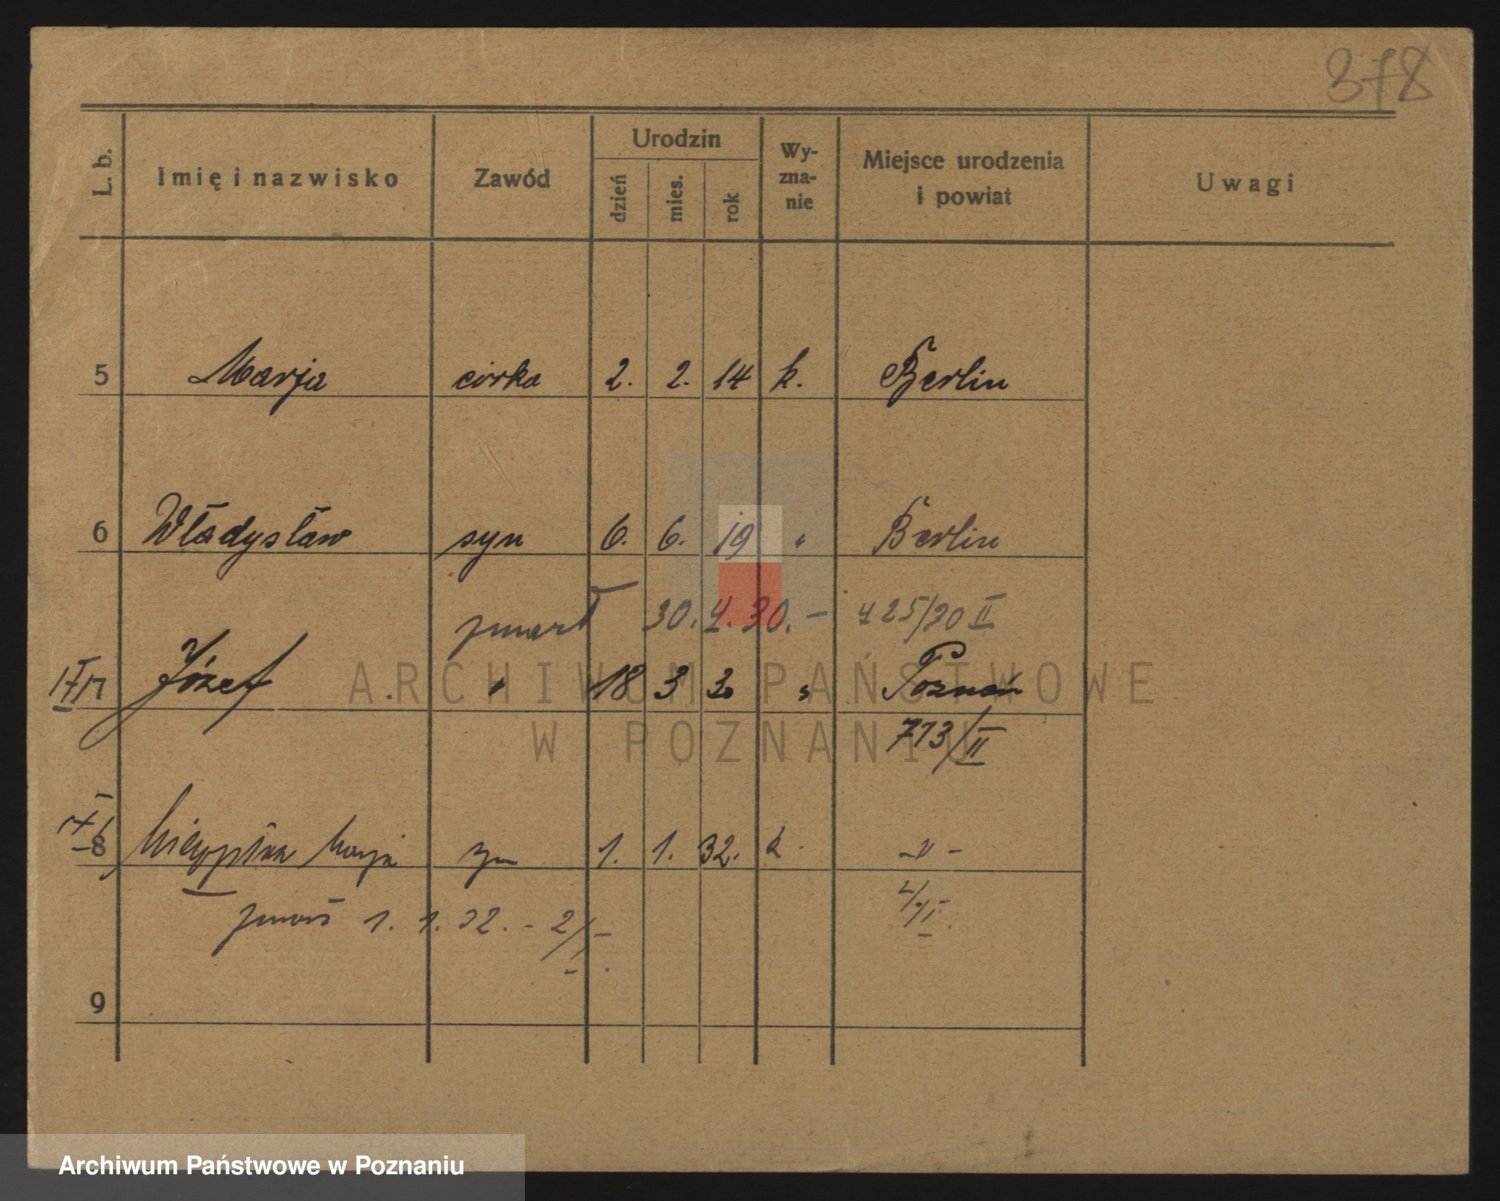 378
L. b. Imię i nazwisko Zawód Urodzin dzień mies. rok Wy-zna-nie Miejsce urodzenia i powiat Uwagi
5 Marja córka 2. 2. 14 k. Berlin
6 Władysław syn 6. 6. 19 " Berlin
zmarł 30. 4. 30. – 425/30 II
Józef " 18 3 30 " Poznań
713/II
8 1. 1. 32. k. -"-
zmarł 1. 1. 32. - 2/I
2/I
9
ARCHIWUM PAŃSTWOWE
W POZNANIU
Archiwum Państwowe w Poznaniu